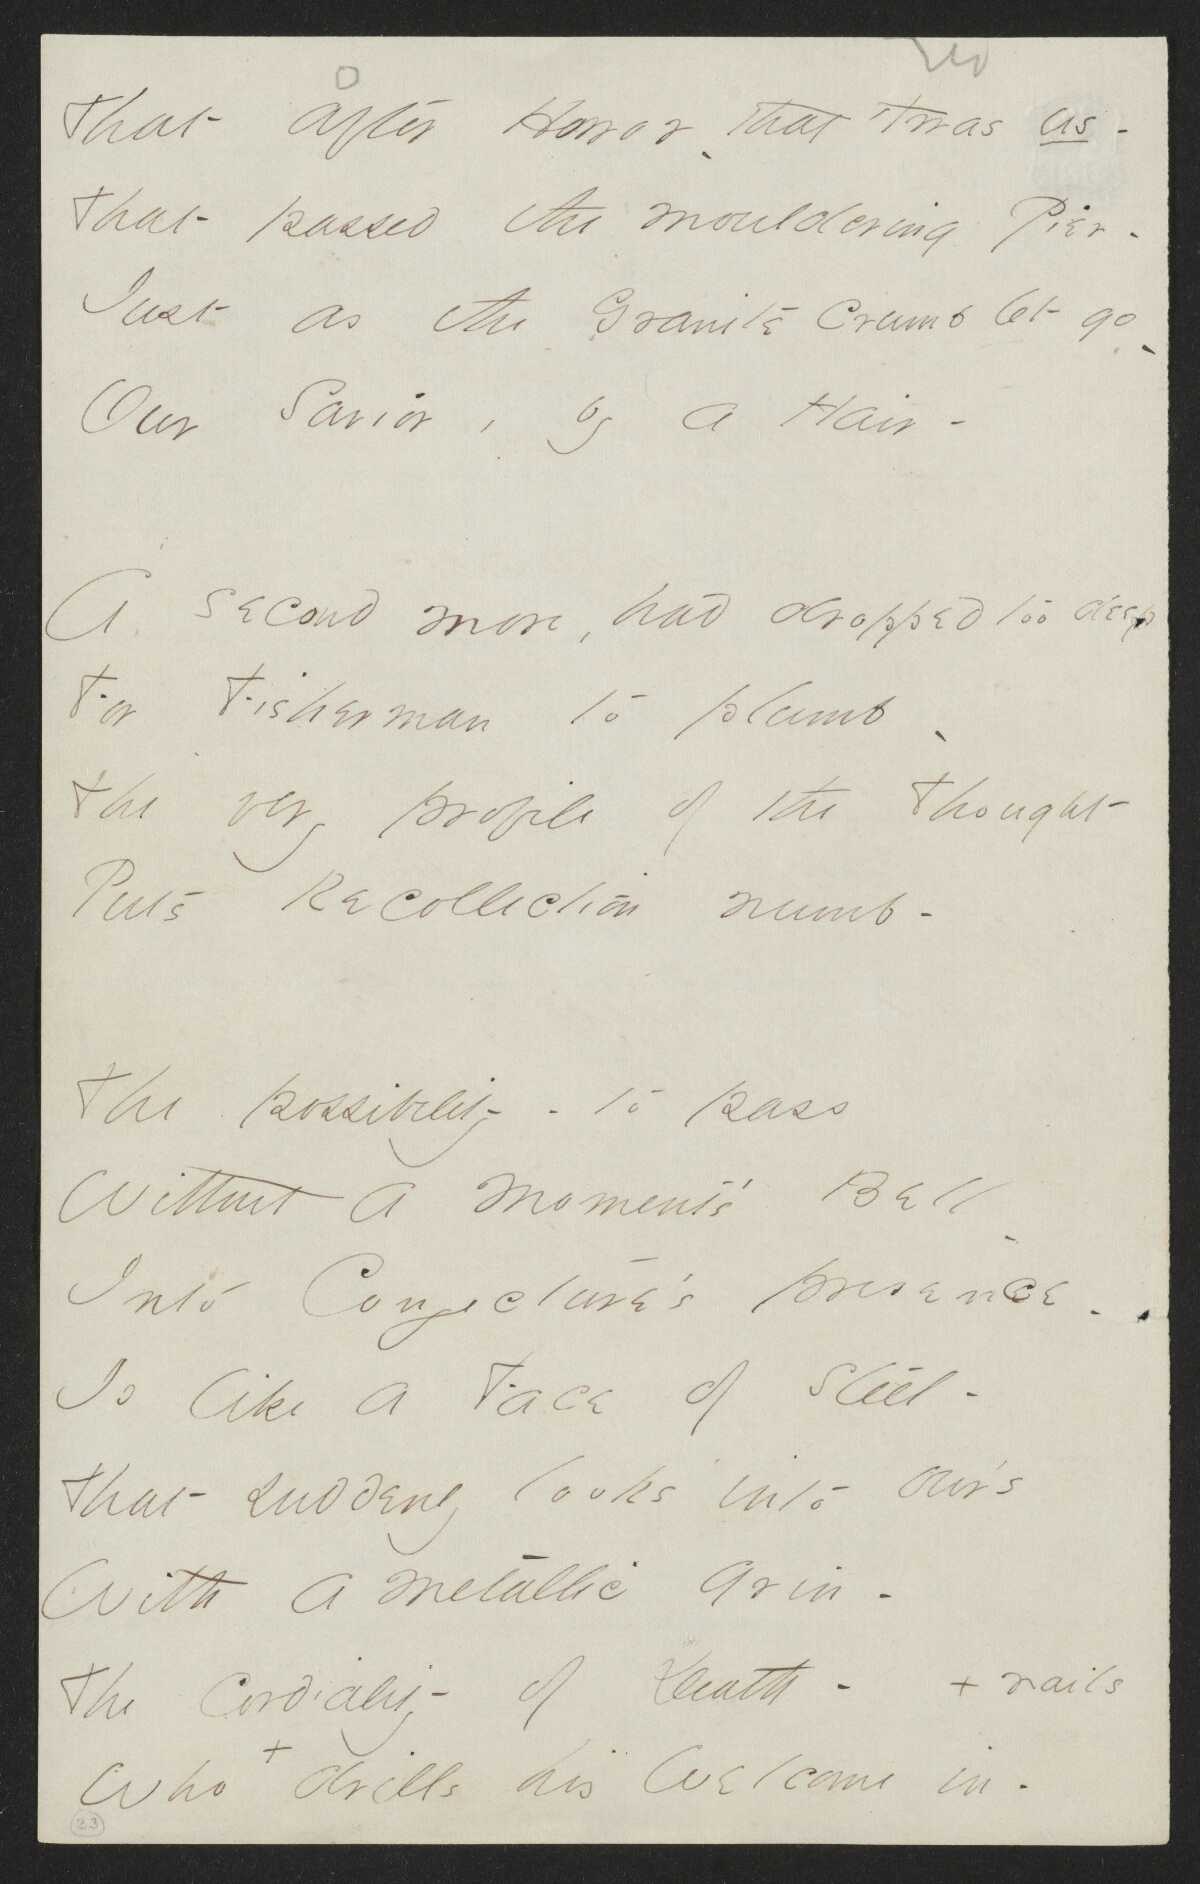 That after Horror - that 'twas us -
That passed the mouldering Pier -
Just as the Granite Crumb let go -
Our Savior, by a Hair -
A second more, had dropped too deep
For Fisherman to plumb -
The very profile of the Thought
Puts Recollection numb -
The possibility - to pass
Without a Moment's Bell -
Into Conjecture's presence -
Is like a Face of Steel -
That suddenly looks into our's
With a metallic grin -
The Cordiality of Death - + nails
Who + drills his Welcome in -
23